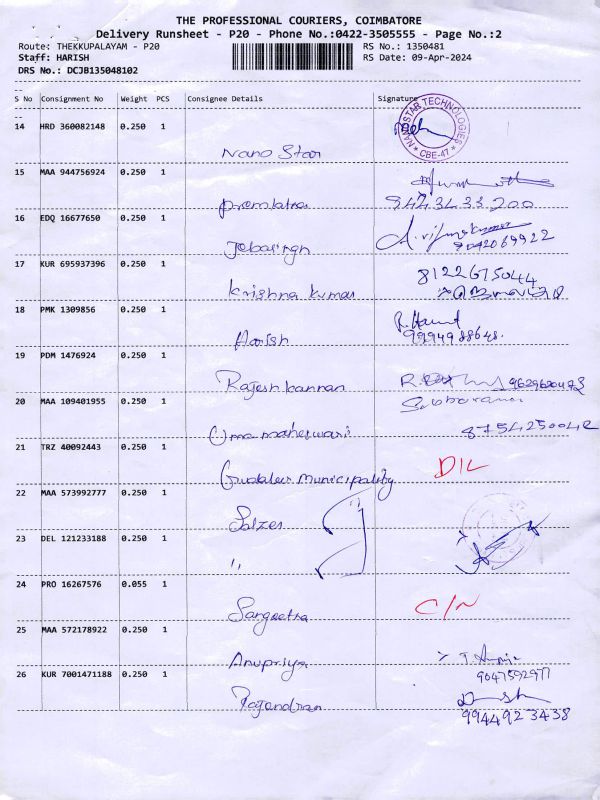 THE PROFESSIONAL COURIERS, COIMBATORE
Delivery Runsheet - P20 - Phone No.:0422-3505555 - Page No.:2
Route: THEKKUPALAYAM - P20 RS No.: 1350481
Staff: HARISH RS Date: 09-Apr-2024
DRS No.: DCJB135048102
S No Consignment No Weight PCS Consignee Details Signature
14 HRD 360082148 0.250 1
Nano Star
NANOSTAR TECHNOLOGIES
CBE-47
15 MAA 944756924 0.250 1
Premlatha 9443433200
16 EDQ 16677650 0.250 1
Jebasingh 7092069922
17 KUR 695937396 0.250 1
Krishna Kumar 8122675044
18 PMK 1309856 0.250 1
Harish 9994988648
19 PDM 1476924 0.250 1
Rajesh kannan 9629620473
20 MAA 109401955 0.250 1
Uma maheswari 8754250042
21 TRZ 40092443 0.250 1
Gudalur Municipality D/L
22 MAA 573992777 0.250 1
Salzer
23 DEL 121233188 0.250 1
"
24 PRO 16267576 0.055 1
Sangeetha C/N
25 MAA 572178922 0.250 1
Anupriya 9047592977
26 KUR 7001471188 0.250 1
Rajendran 9944923438